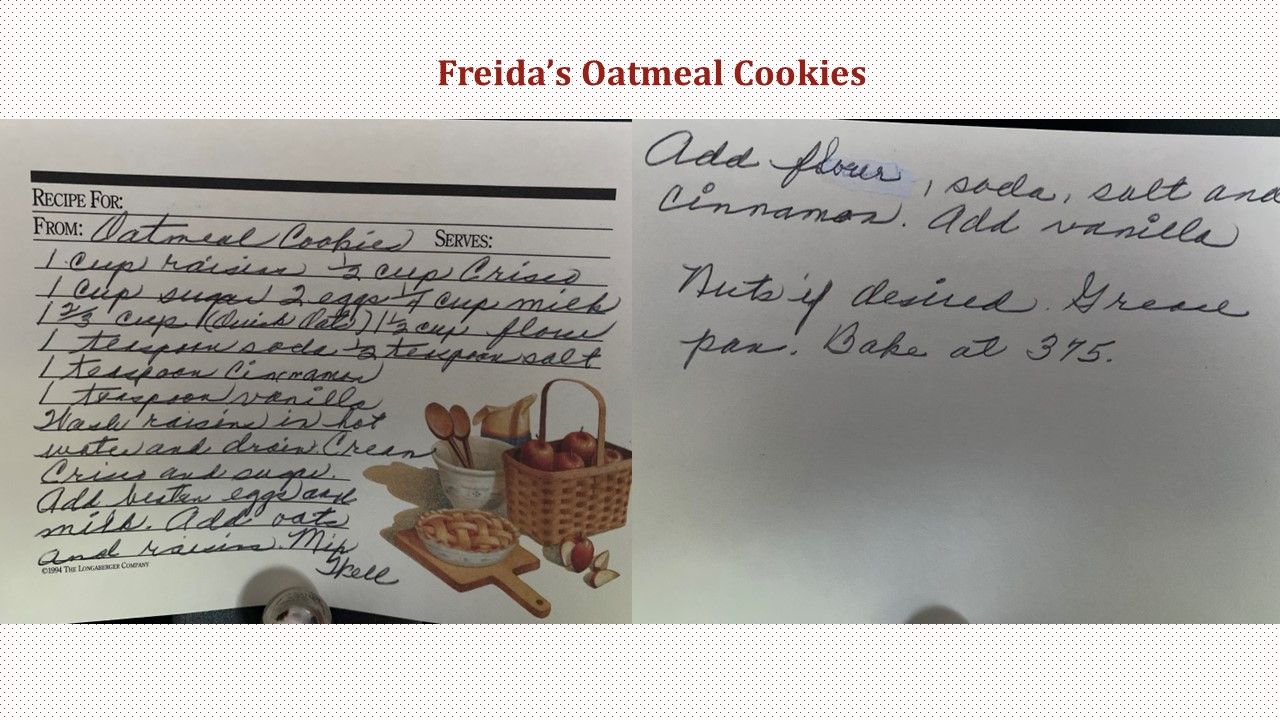 Freida's Oatmeal Cookies
RECIPE FOR:
FROM: Oatmeal Cookies SERVES:
1 cup raisins 1/2 cup Crisco
1 cup sugar 2 eggs 1/4 cup milk
1 2/3 cup (Quick Oats) 1 1/2 cup flour
1 teaspoon soda 1/2 teaspoon salt
1 teaspoon Cinnamon
1 teaspoon vanilla
Wash raisins in hot
water and drain. Cream
Crisco and sugar.
Add beaten eggs and
milk. Add oats
and raisins. Mix
©1994 THE LONGABERGER COMPANY
Add flour, soda, salt and
Cinnamon. Add vanilla
Nuts if desired. Grease
pan. Bake at 375.